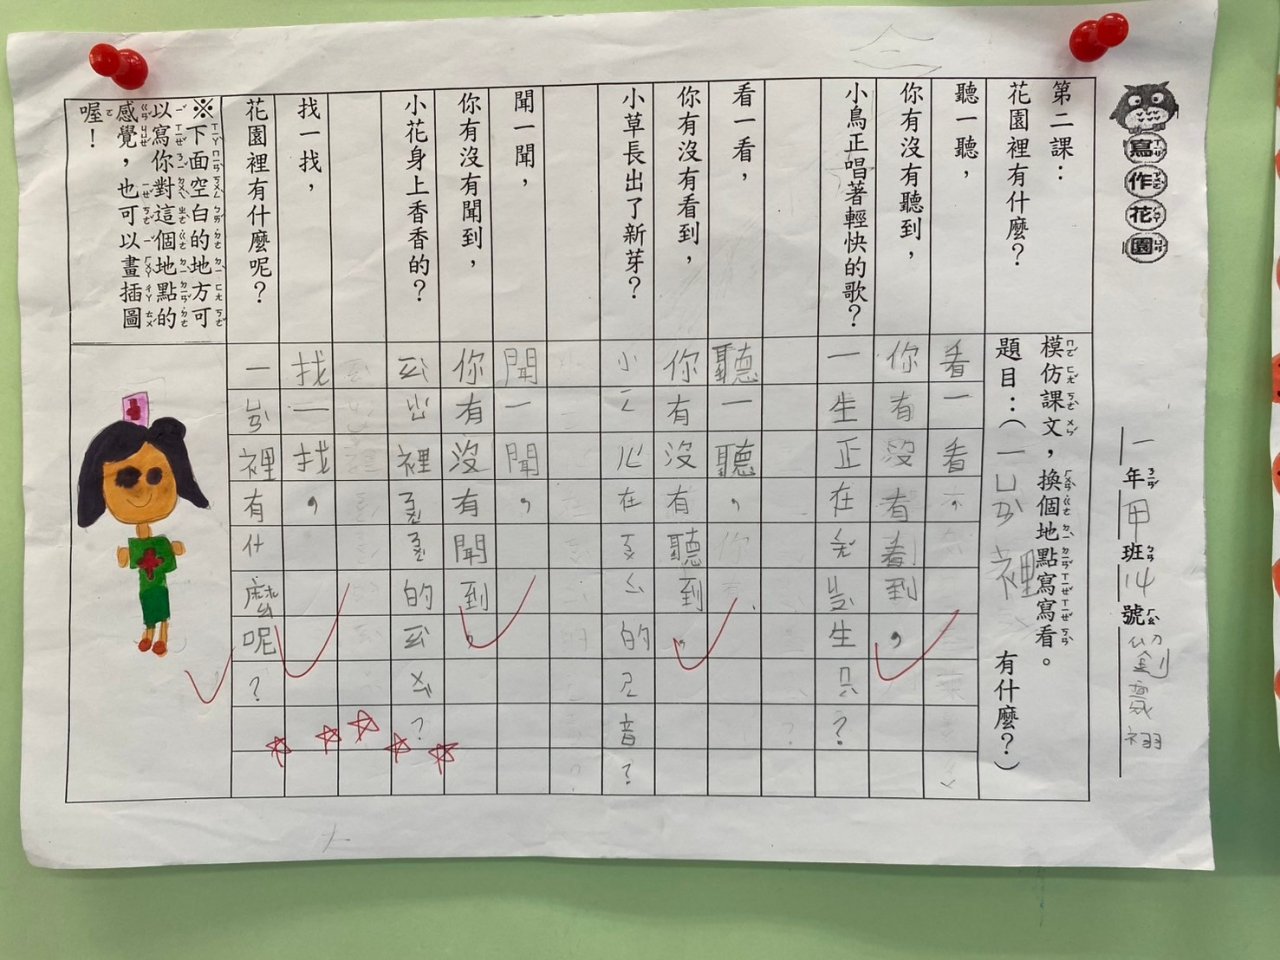 寫作花園
一年甲班14號
第二課：
花園裡有什麼？
聽一聽，
你有沒有聽到，
小鳥正唱著輕快的歌？
看一看，
你有沒有看到，
小草長出了新芽？
聞一聞，
你有沒有聞到，
小花身上香香的？
找一找，
花園裡有什麼呢？
※下面空白的地方可
以寫你對這個地點的
感覺，也可以畫插圖
喔！
模仿課文，換個地點寫寫看。
題目：（一ㄩㄢ裡有什麼？）
看一看，
你有沒有看到，
一生正在ㄎㄢ生ㄅㄧㄥ？
聽一聽，
你有沒有聽到，
在的音？
聞一聞，
你有沒有聞到，
裡的？
找一找，
一ㄩㄢ裡有什麼呢？